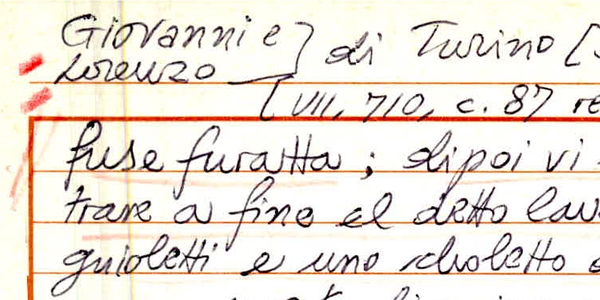 Giovanni e } di Turino [
Lorenzo
[VII, 710, c. 87 re
fuse furatta; dipoi vi
trare a fine el detto lav
guioletti e uno choletto